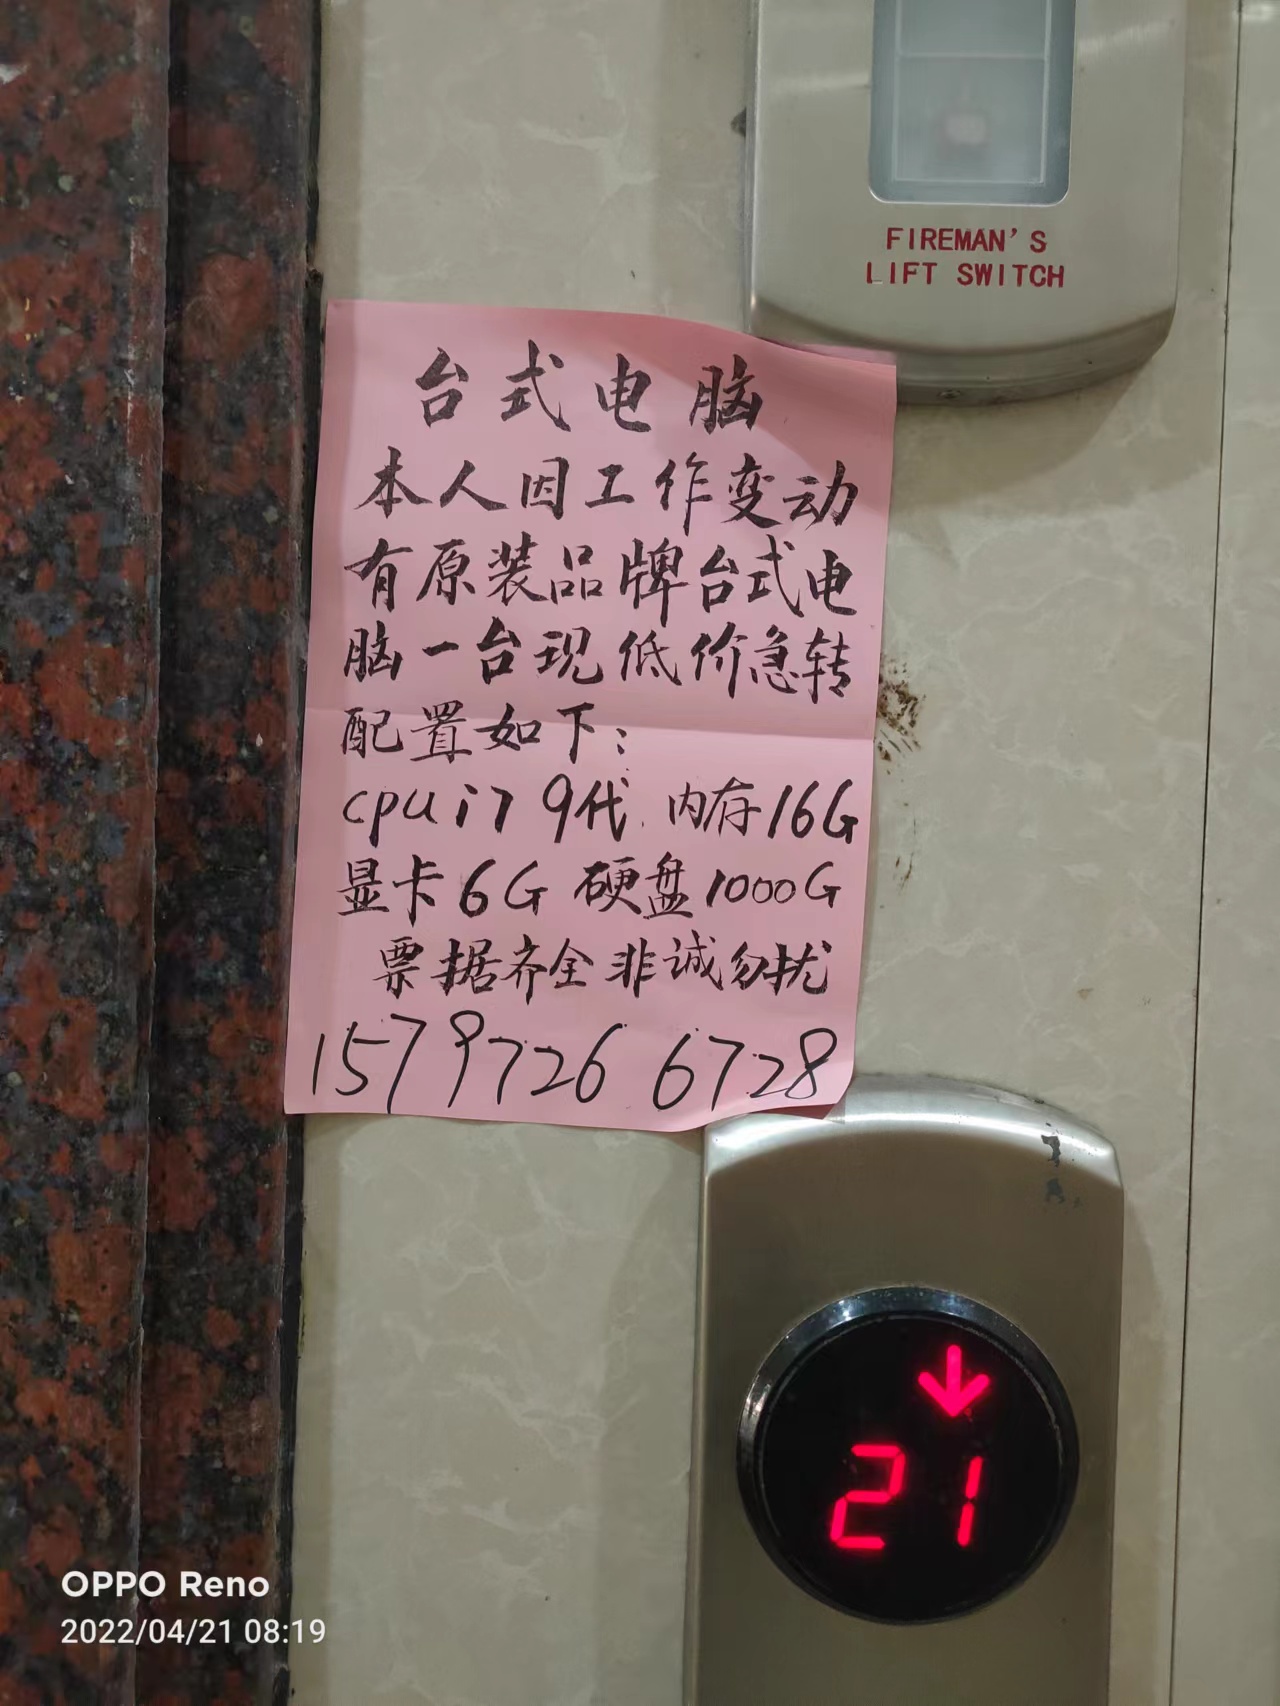 FIREMAN'S
LIFT SWITCH
台式电脑
本人因工作变动
有原装品牌台式电
脑一台现低价急转
配置如下:
cpu i7 9代 内存16G
显卡6G 硬盘1000G
票据齐全非诚勿扰
1579726 6728
21
OPPO Reno
2022/04/21 08:19